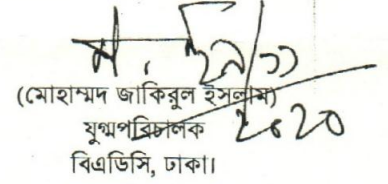 ((মোহাম্মদ জাকিরুল ইসলাম)
যুগ্মপরিচালক
২০২০
বিএডিসি, ঢাকা।